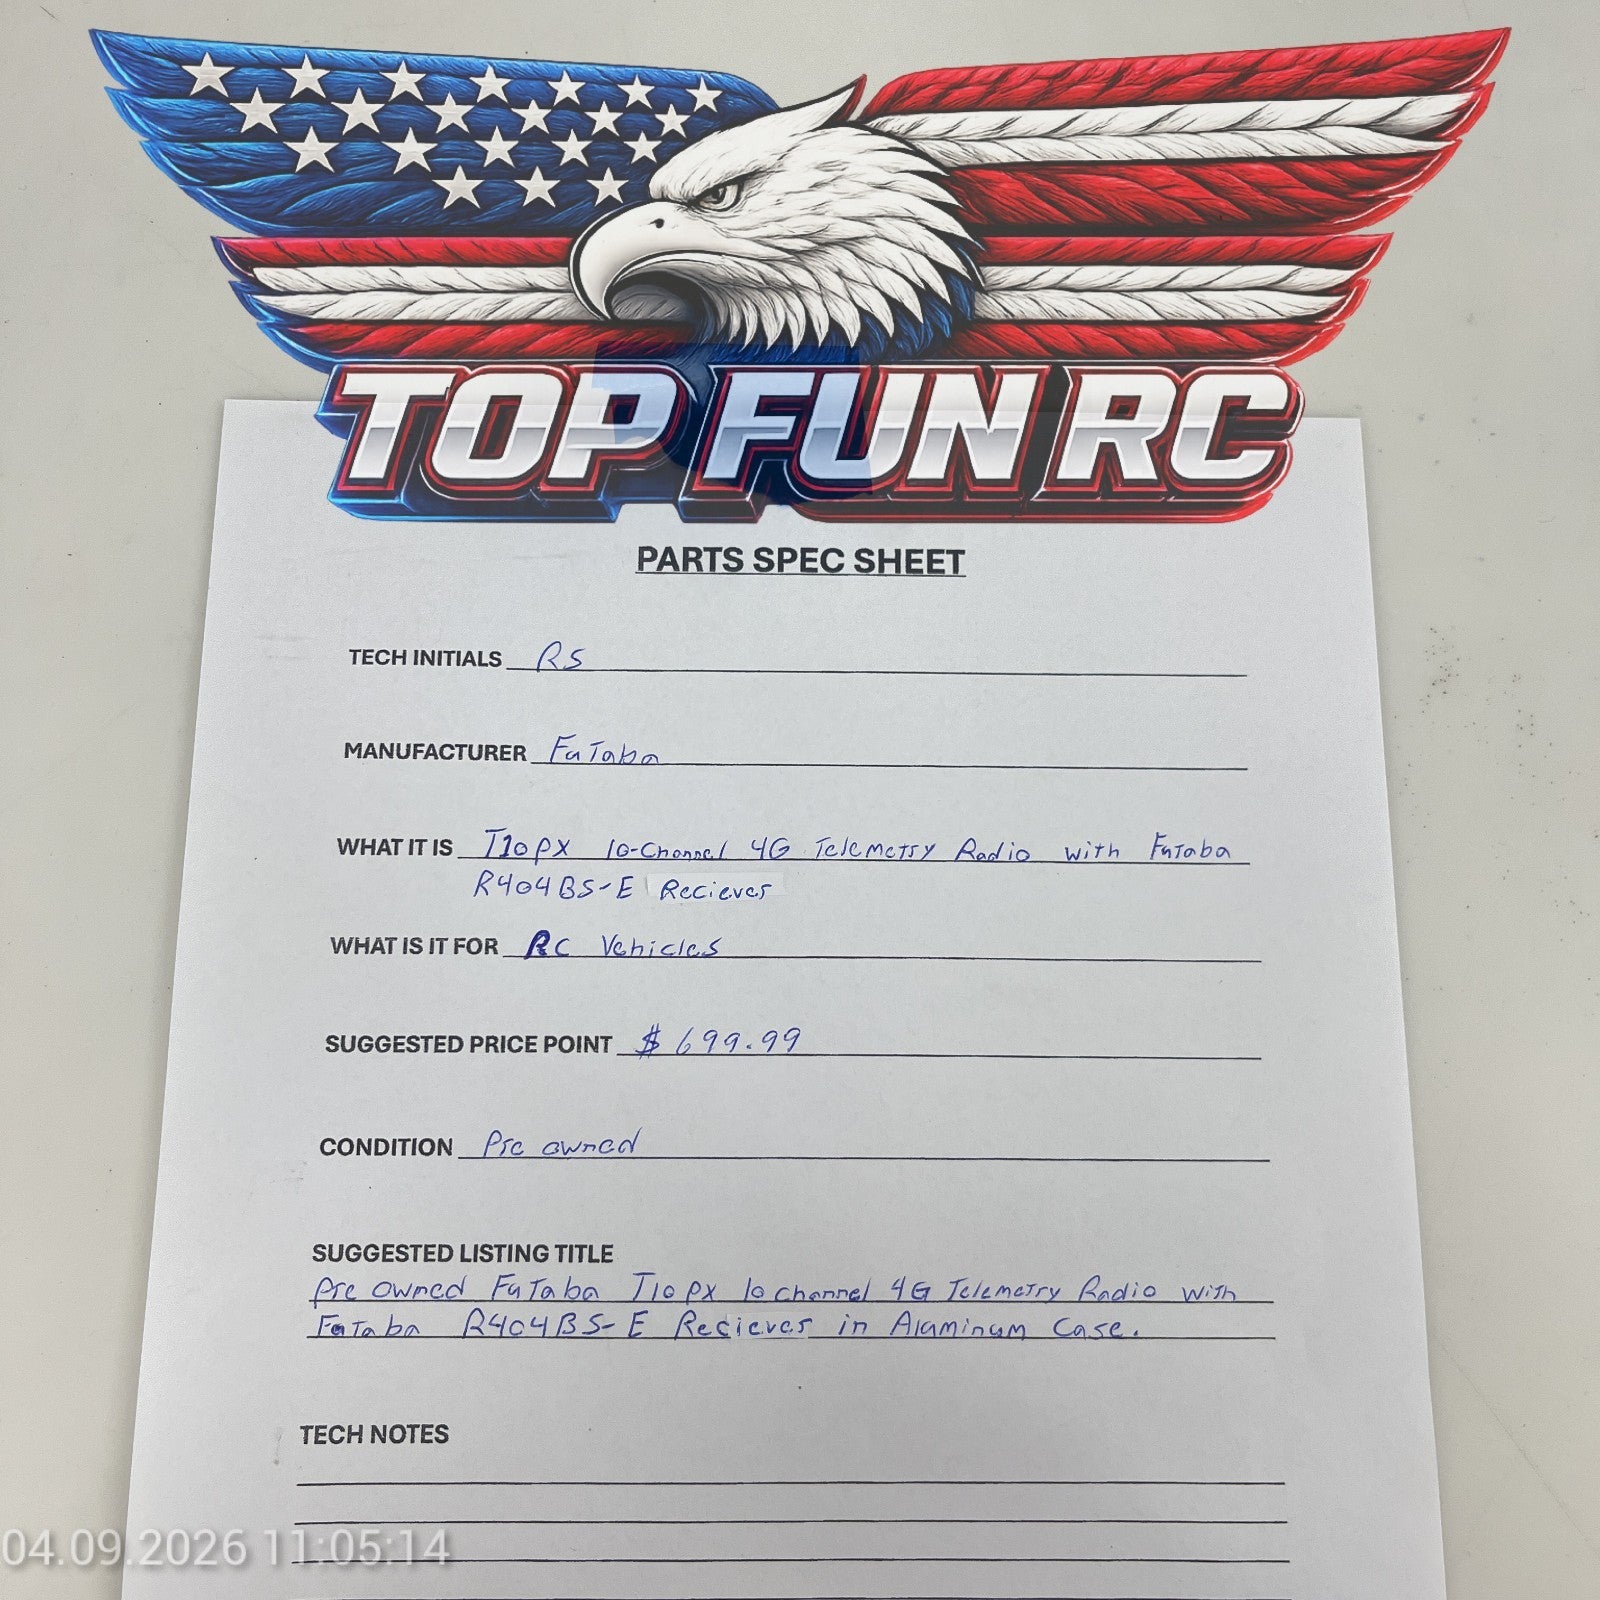 TOP FUN RC
PARTS SPEC SHEET
TECH INITIALS RS
MANUFACTURER Futaba
WHAT IT IS T10PX 10-Channel 4G Telemetry Radio with Futaba
R404BS-E Reciever
WHAT IS IT FOR RC Vehicles
SUGGESTED PRICE POINT $ 699.99
CONDITION Pre owned
SUGGESTED LISTING TITLE
Pre owned Futaba T10PX 10 channel 4G Telemetry Radio with
Futaba R404BS-E Reciever in Aluminum Case.
TECH NOTES
04.09.2026 11:05:14